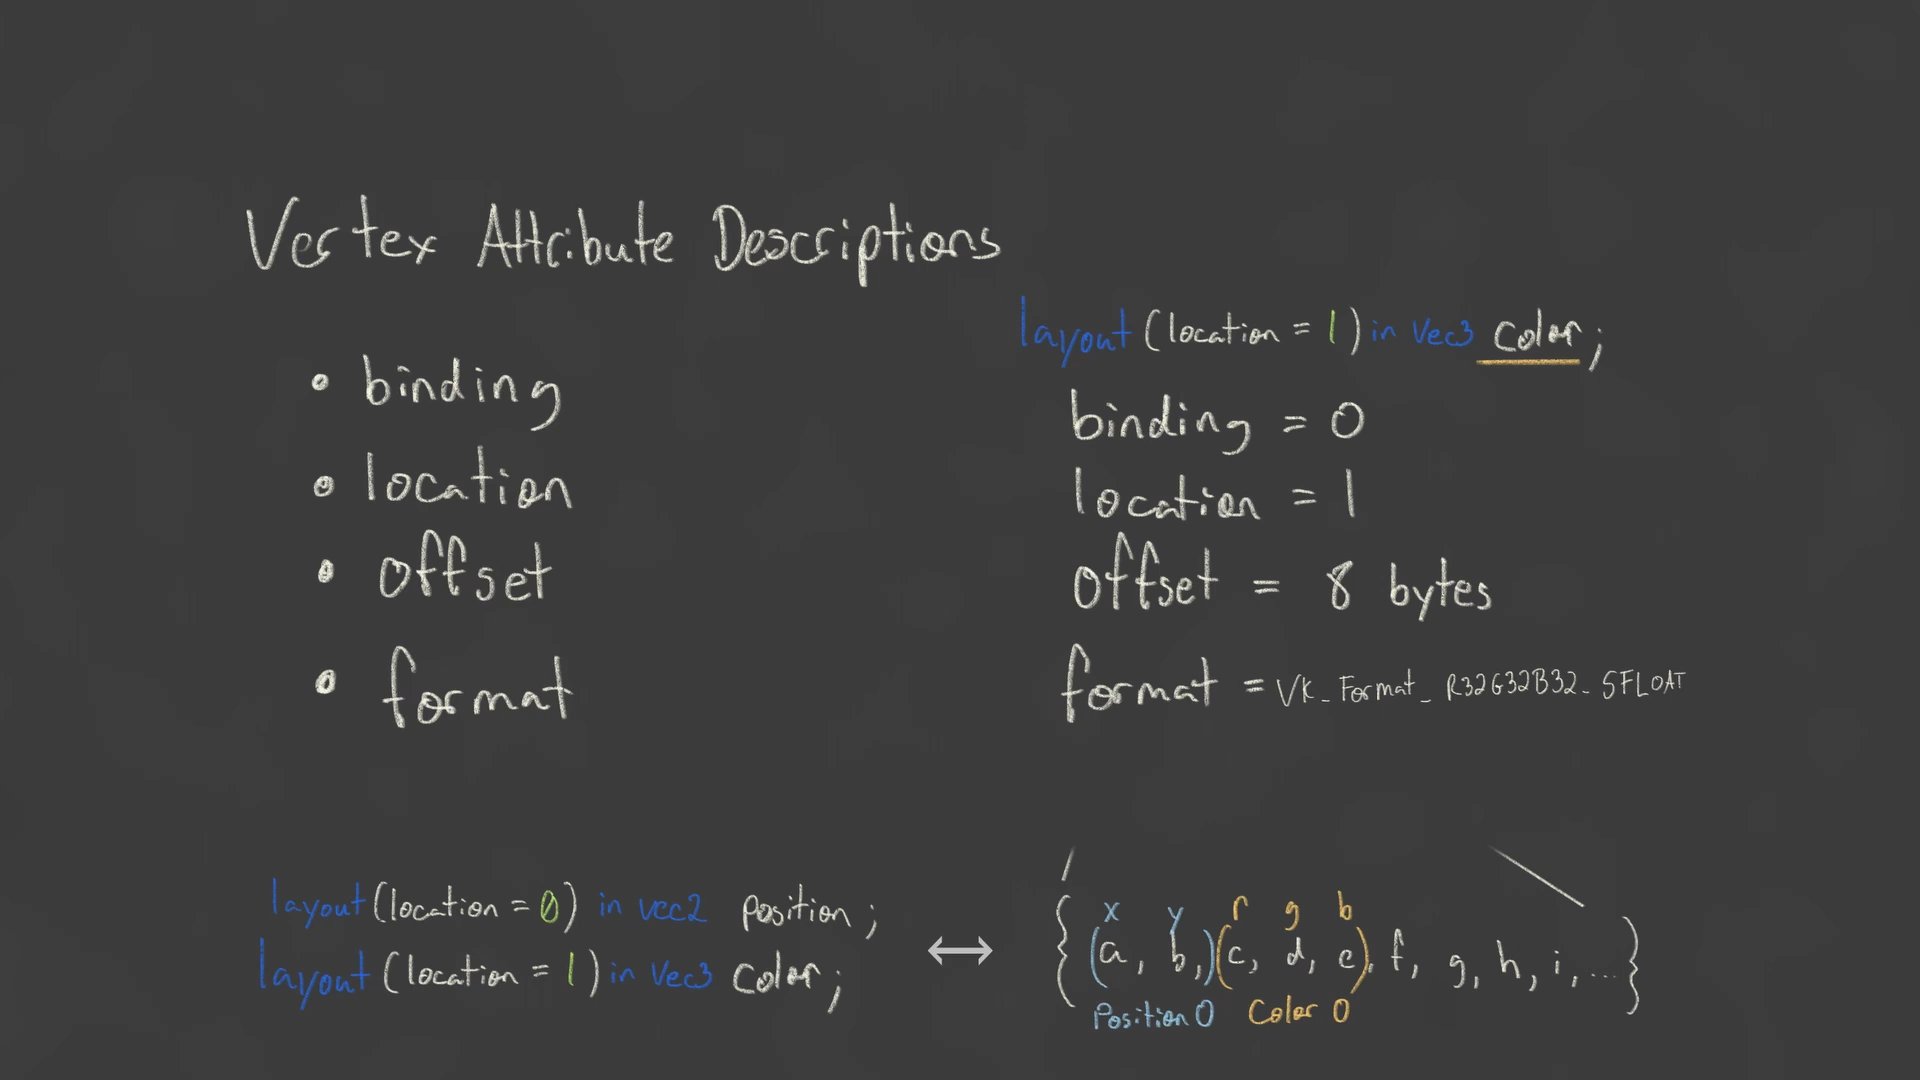 Vertex Attribute Descriptions
• binding
• location
• offset
• format
layout (location = 1) in vec3 color;
binding = 0
location = 1
offset = 8 bytes
format = VK_Format_R32G32B32_SFLOAT
layout (location = 0) in vec2 position;
layout (location = 1) in vec3 color;
↔
x y r g b
{(a, b,)(c, d, e), f, g, h, i, ...}
Position 0 Color 0